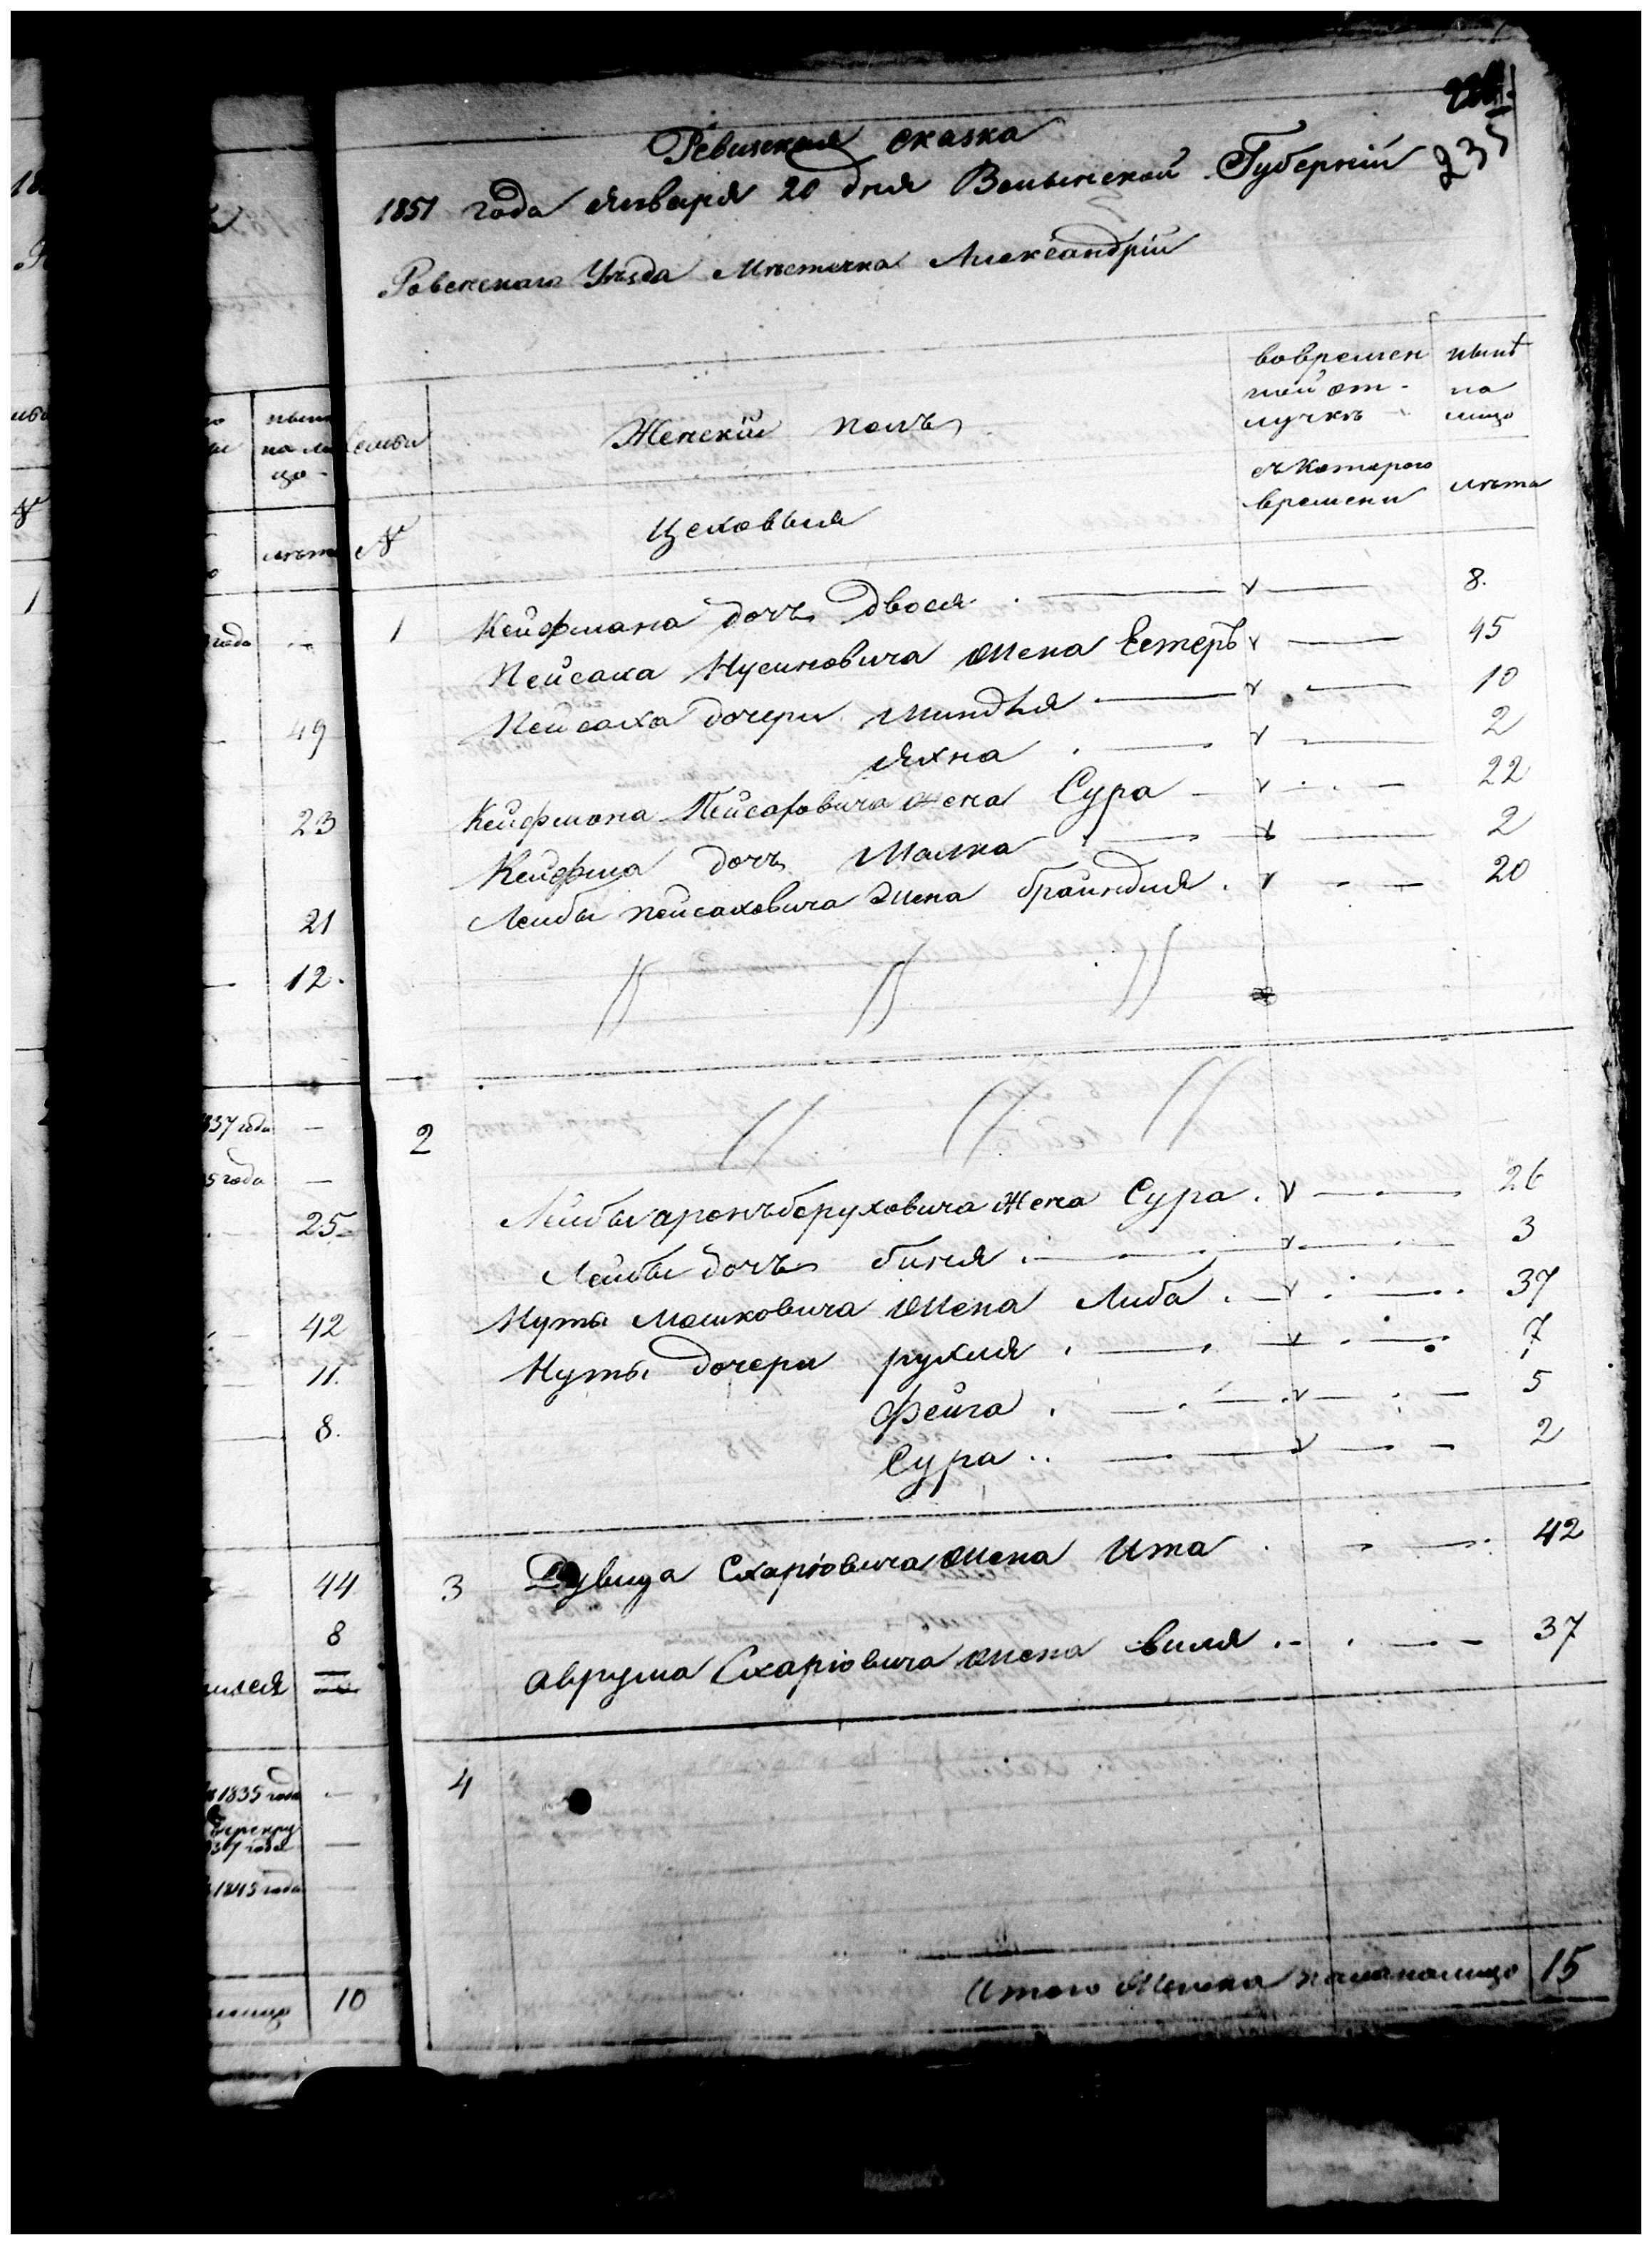 235
Ревизская сказка
1851 года Января 20 дня Волынской Губерніи
Ровенскаго Уѣзда Мѣстечка Александріи
Семьи
Женскій полъ
вовремен
ной от-
лучкѣ
нынѣ
на
лицо
№
Цеховыя
съ котораго
времени
лѣта
1
Кейфмана дочь Двося 8.
Пейсаха Нусиновича жена Естеръ 45
Пейсаха дочери Миндля 10
Яхна 2
Кейфмана Пейсаховича жена Сура 22
Кейфма дочь Малка 2
Лейбы пейсаховича жена брайндля 20
2
Лейбы аронъберуховича жена Сура 26
Лейбы дочь биня 3
Нуты Мошковича жена Либа 37
Нуты дочери рухля 7
фейга 5
Сура 2
3
Дувида Схаріовича жена Ита 42
аврума Схаріовича жена 37
4
Итого женска пола налицо 15
нынѣ
на ли
цо
лѣта
года
49
23
21
12.
1837 года
5 года
25
42
11.
8.
44
8
1835 года
1845 года
лицо 10